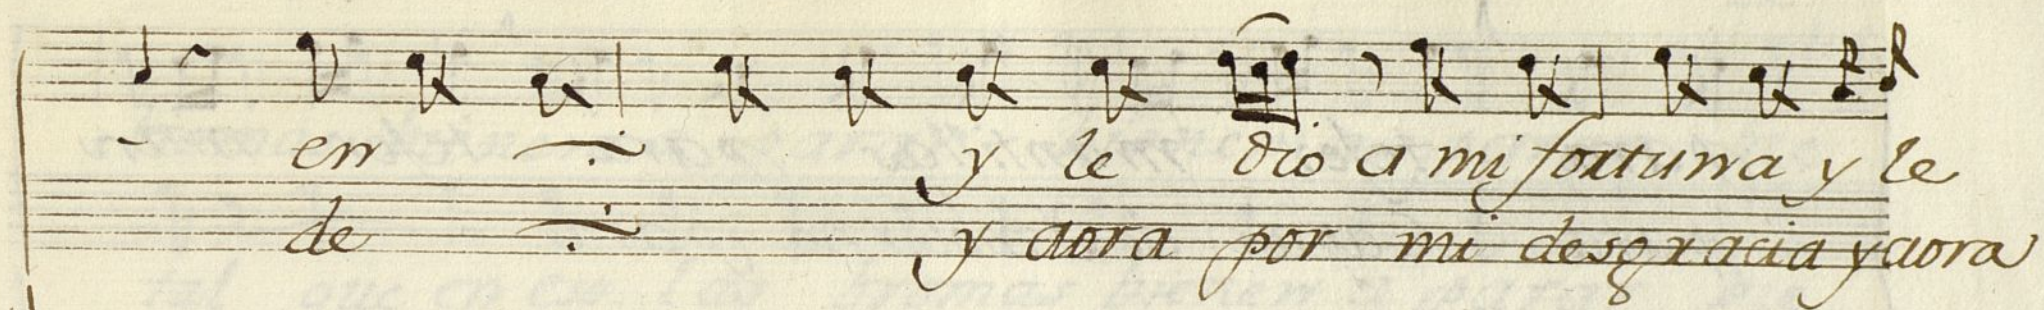 - en y le dio a mi fortuna y le
de y aora por mi desgracia y aora